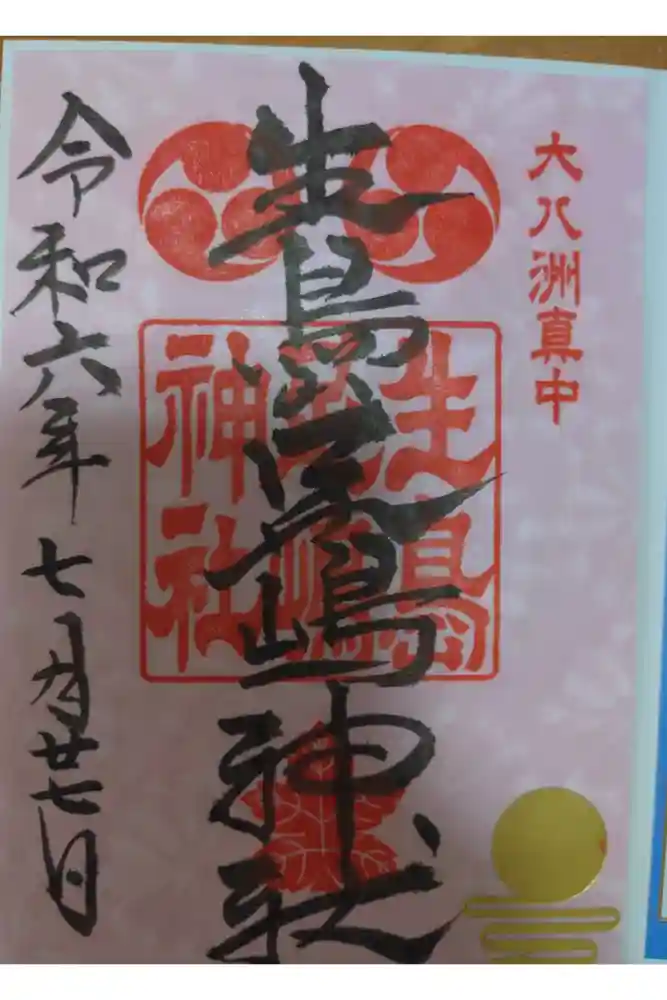 大八洲真中
生島足嶋神社
生島
足嶋
神社
令和六年七月廿七日